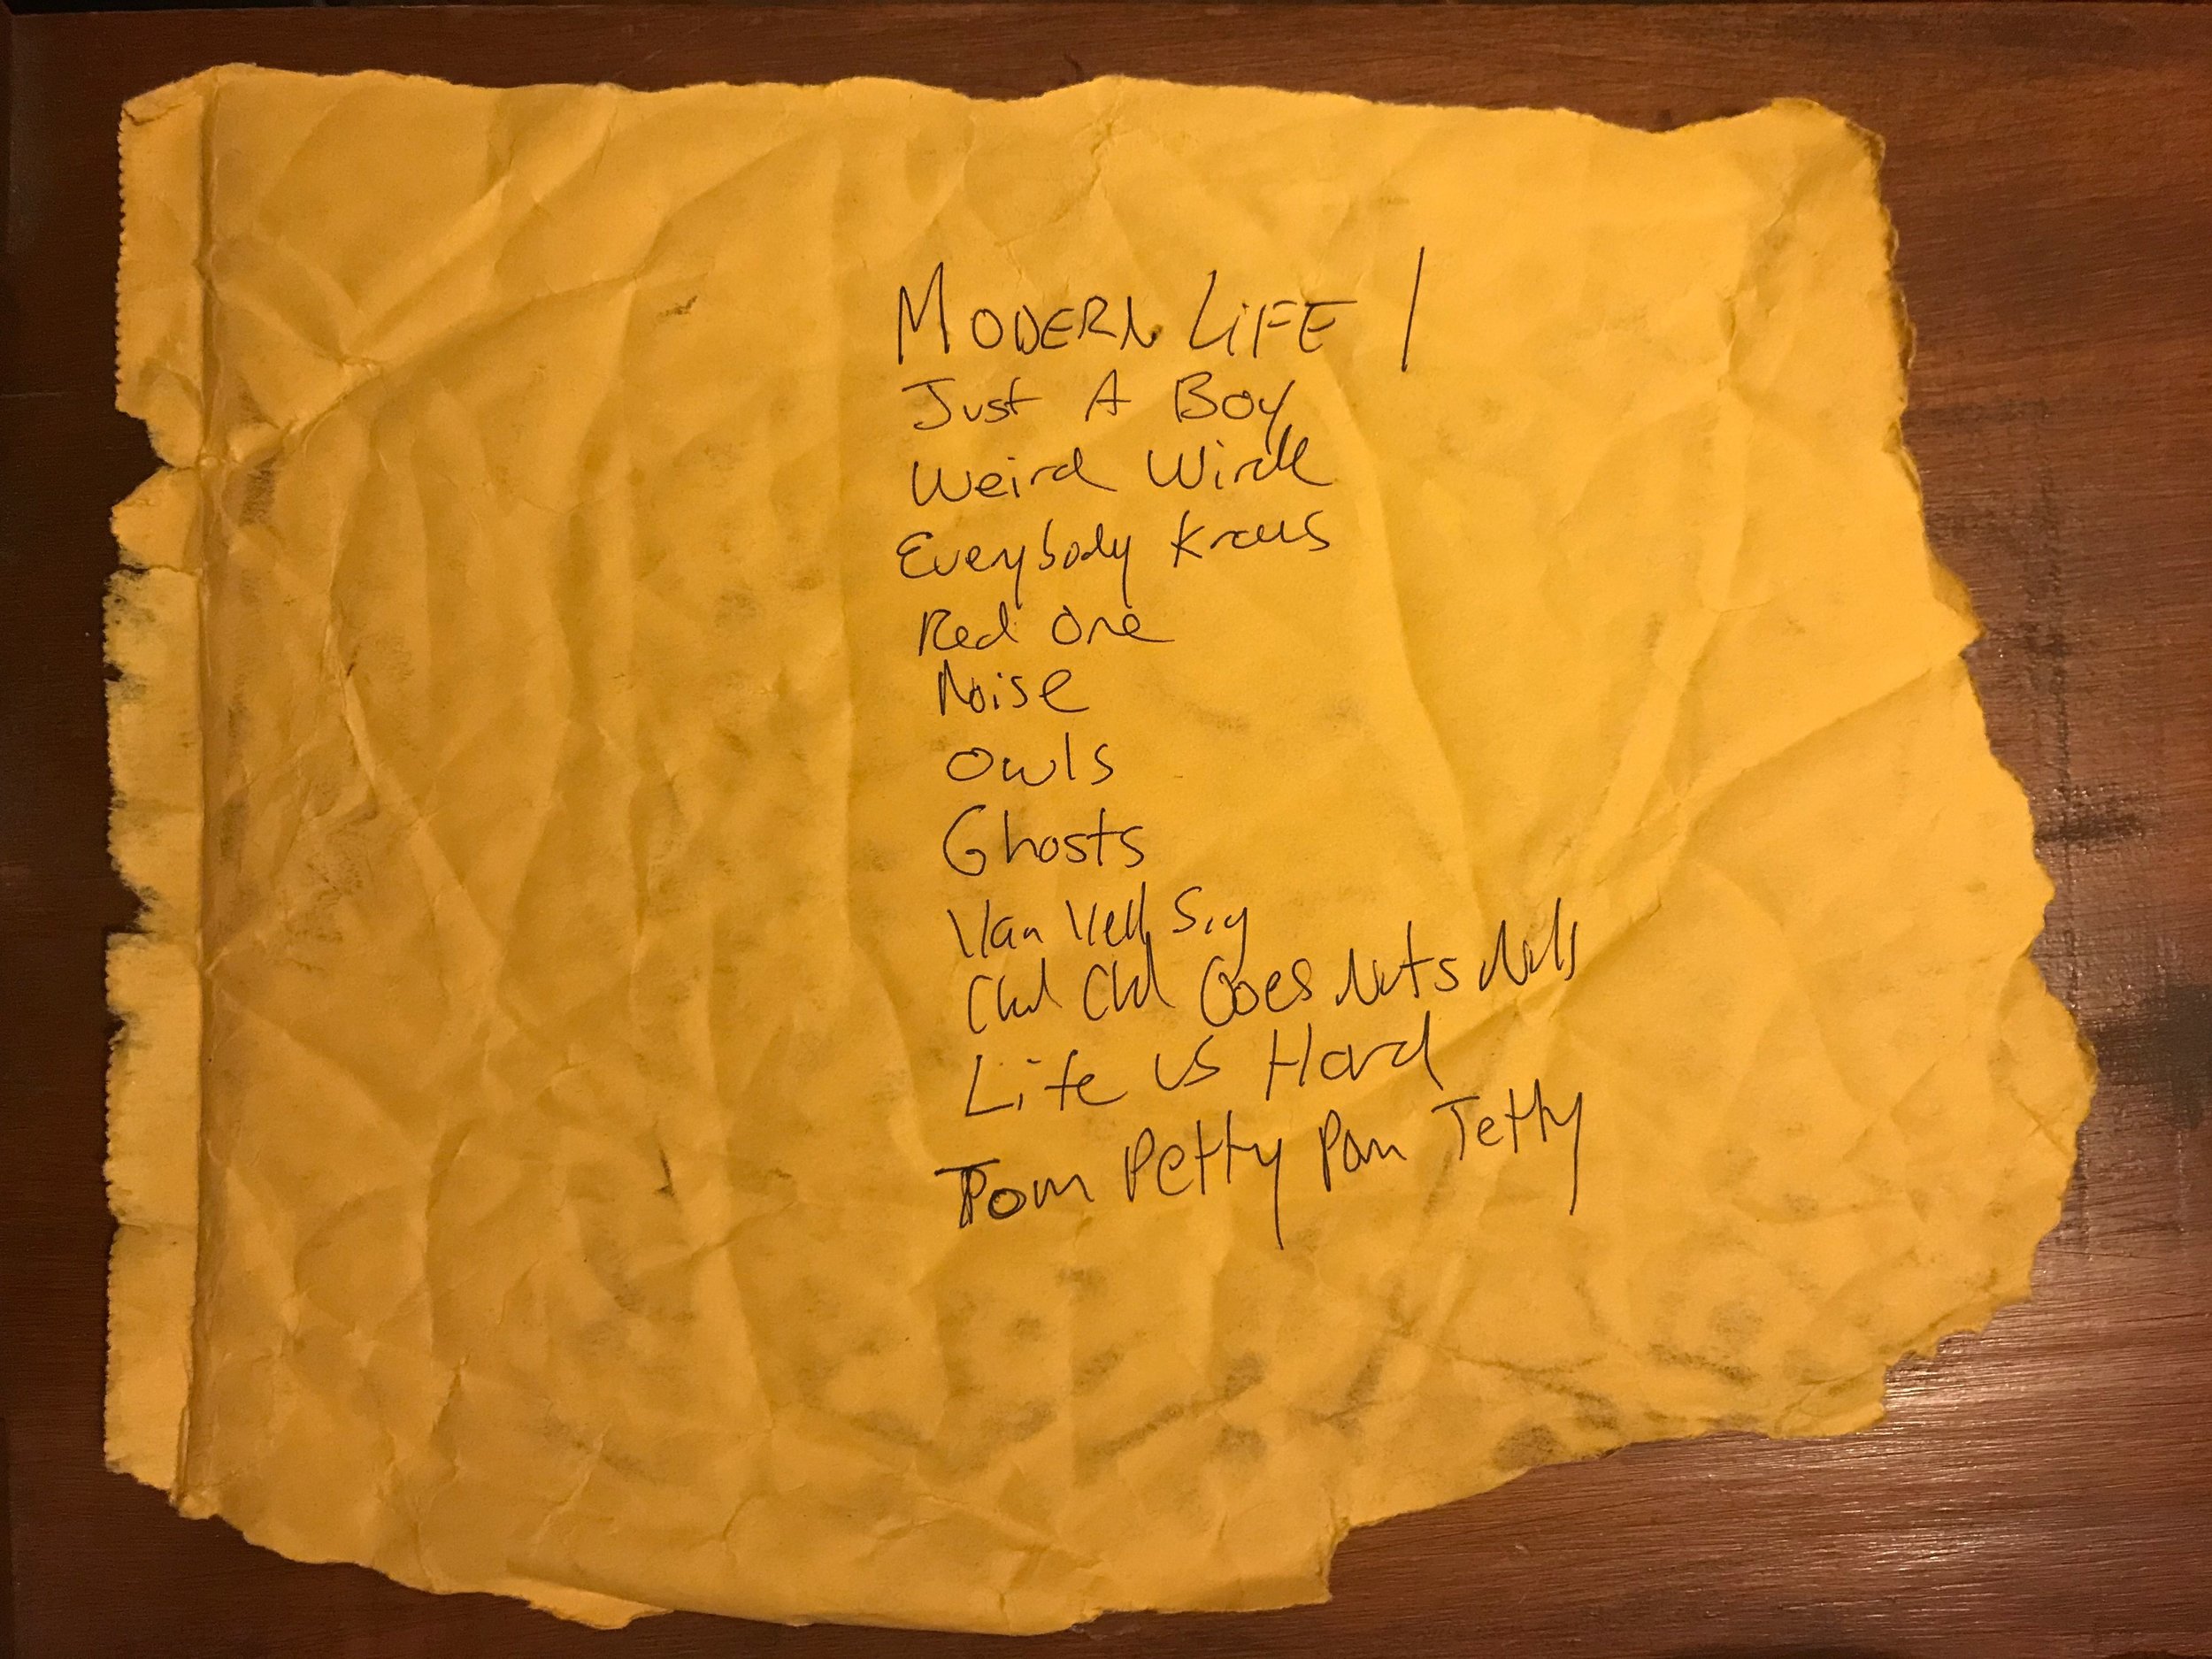 MODERN LIFE /
Just A Boy
Weird
Everybody Knows
Red One
Noise
Owls
Ghosts
Van
Goes Nuts
Life is Hard
Tom Petty Pom Tetty